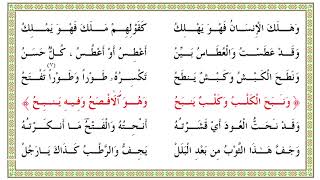 وَهَلَكَ الْاِنْسَانُ فَهْوَ يَهْلِكُ كَقَوْلِهِمْ مَلَكَ فَهْوَ يَمْلِكُ
وَقَدْ عَطَسْتُ وَالْعُطَاسُ بَيِّنُ أَعْطِسُ أَوْ أَعْطُسُ ، كُلٌّ حَسَنُ
وَنَطَحَ الْكَبْشُ وَكَبْشٌ يَنْطَحُ تَكْسِرُهُ، طَوْرًا وَطَوْرًا(٢) تَفْتَحُ
﴿ وَنَبَحَ الْكَلْبُ وَكَلْبٌ يَنْبَحُ وَهْوَ الَافْصَحُ وَفِيهِ يَنْبِحُ ﴾
وَقَدْ نَحَتُّ الْعُودَ أَيْ قَشَرْتُهُ أَنْحِتُهُ وَالْفَتْحَ مَا أَنْكَرْتُهُ
وَجَفَّ هَٰذَا الثَّوْبُ مِنْ بَعْدِ الْبَلَلْ يَجِفُّ وَالرَّطْبُ كَذَاكَ يَارَجُلْ